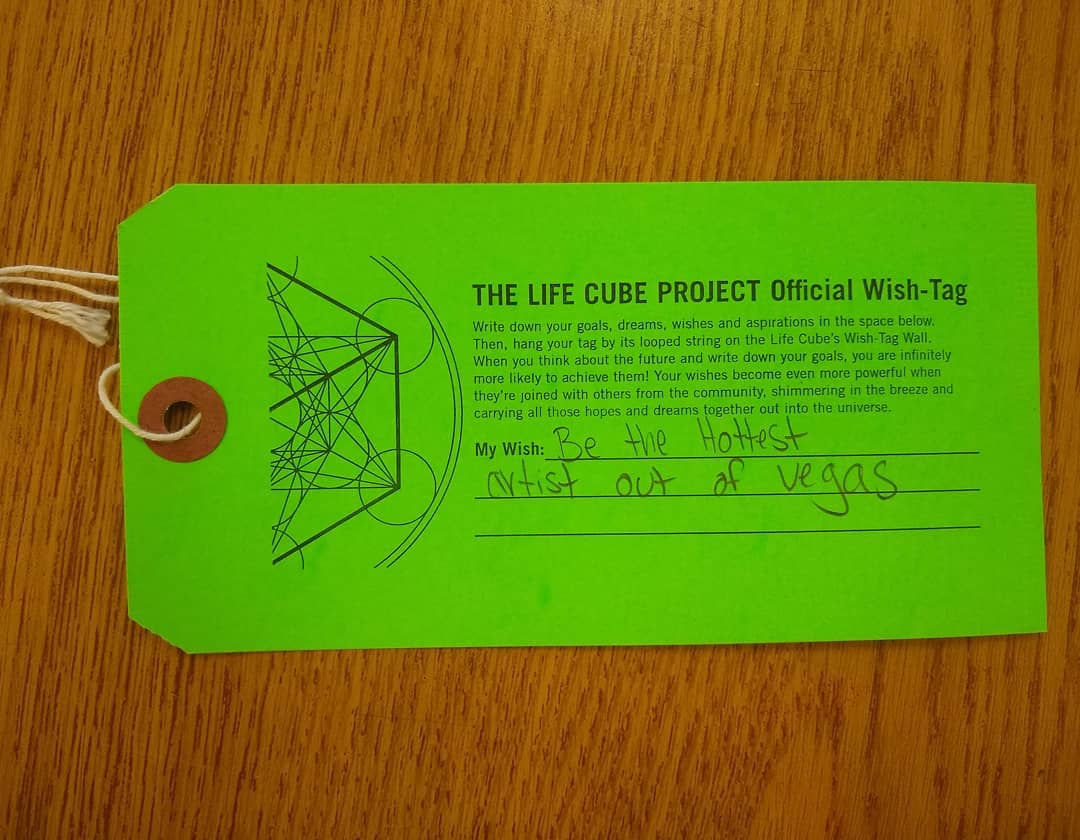 THE LIFE CUBE PROJECT Official Wish-Tag
Write down your goals, dreams, wishes and aspirations in the space below.
Then, hang your tag by its looped string on the Life Cube's Wish-Tag Wall.
When you think about the future and write down your goals, you are infinitely
more likely to achieve them! Your wishes become even more powerful when
they're joined with others from the community, shimmering in the breeze and
carrying all those hopes and dreams together out into the universe.
My Wish: Be the Hottest
artist out of vegas